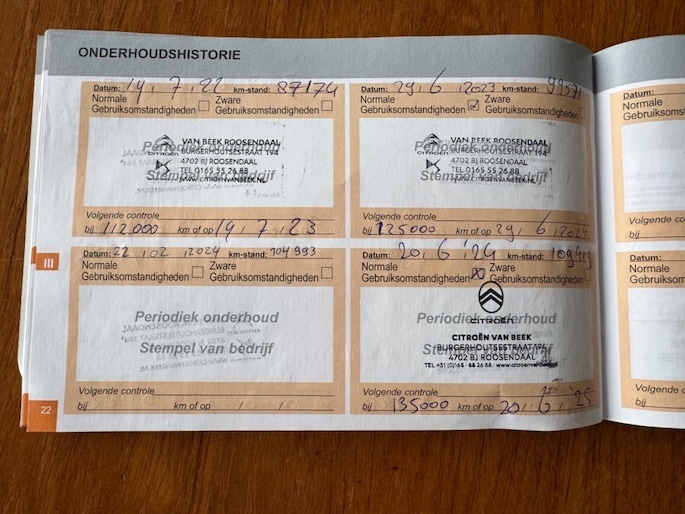 ONDERHOUDSHISTORIE
Datum: 19, 7, 22 km-stand: 87174
Normale Gebruiksomstandigheden
Zware Gebruiksomstandigheden
Periodiek onderhoud
Stempel van bedrijf
CITROËN
VAN BEEK ROOSENDAAL
BURGERHOUTSESTRAAT 194
4702 BJ ROOSENDAAL
TEL 0165 55 26 88
WWW.CITROENVANBEEK.NL
Volgende controle
bij 112.000 km of op 19, 7, 23
Datum: 29, 6, 2023 km-stand:
Normale Gebruiksomstandigheden
Zware Gebruiksomstandigheden
Periodiek onderhoud
Stempel van bedrijf
CITROËN
VAN BEEK ROOSENDAAL
BURGERHOUTSESTRAAT 194
4702 BJ ROOSENDAAL
TEL 0165 55 26 88
WWW.CITROENVANBEEK.NL
Volgende controle
bij 125000 km of op 29, 6, 2024
Datum: 22, 02, 2024 km-stand: 104993
Normale Gebruiksomstandigheden
Zware Gebruiksomstandigheden
Periodiek onderhoud
Stempel van bedrijf
Volgende controle
bij km of op / /
Datum: 20, 6, '24 km-stand:
Normale Gebruiksomstandigheden
Zware Gebruiksomstandigheden
Periodiek onderhoud
Stempel van bedrijf
CITROËN
CITROËN VAN BEEK
BURGERHOUTSESTRAAT 194
4702 BJ ROOSENDAAL
TEL +31 (0)165 - 55 26 88 - www.citroenvanbeek
Volgende controle
bij 135000 km of op 20, 6, '25
III
22
Datum:
Normale
Gebruiksom
Volgende co
bij
Datum:
Normale
Gebruiksom
Volgende c
bij